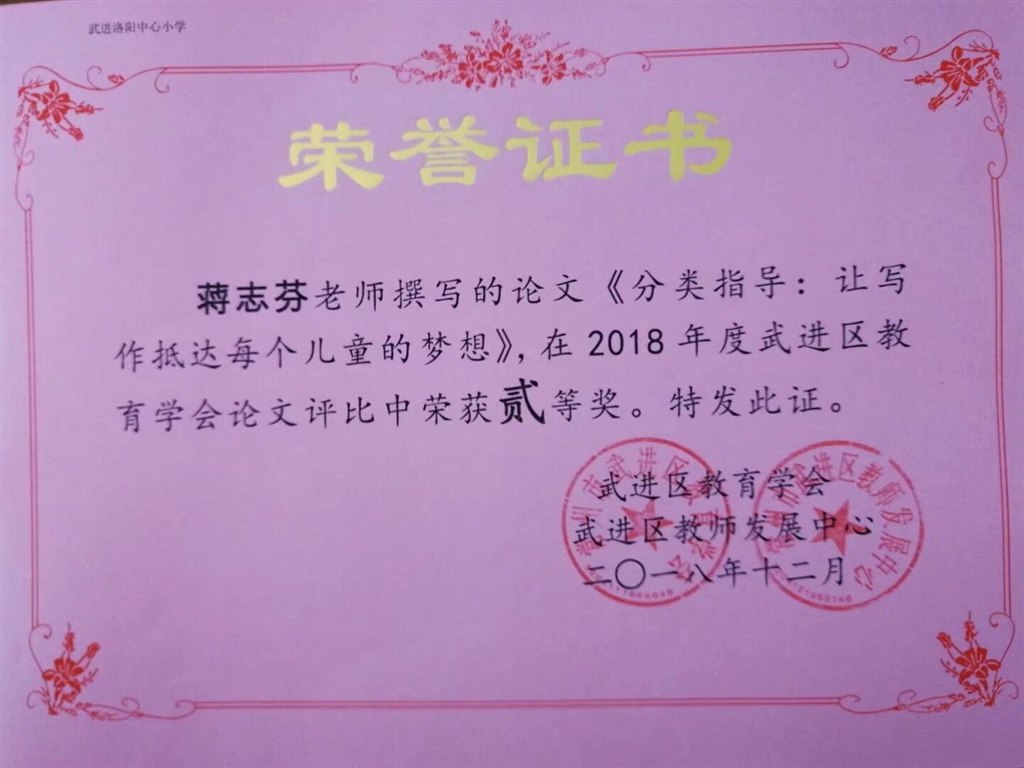 武进洛阳中心小学
荣誉证书
蒋志芬老师撰写的论文《分类指导：让写
作抵达每个儿童的梦想》，在2018年度武进区教
育学会论文评比中荣获贰等奖。特发此证。
武进区教育学会
武进区教师发展中心
二〇一八年十二月